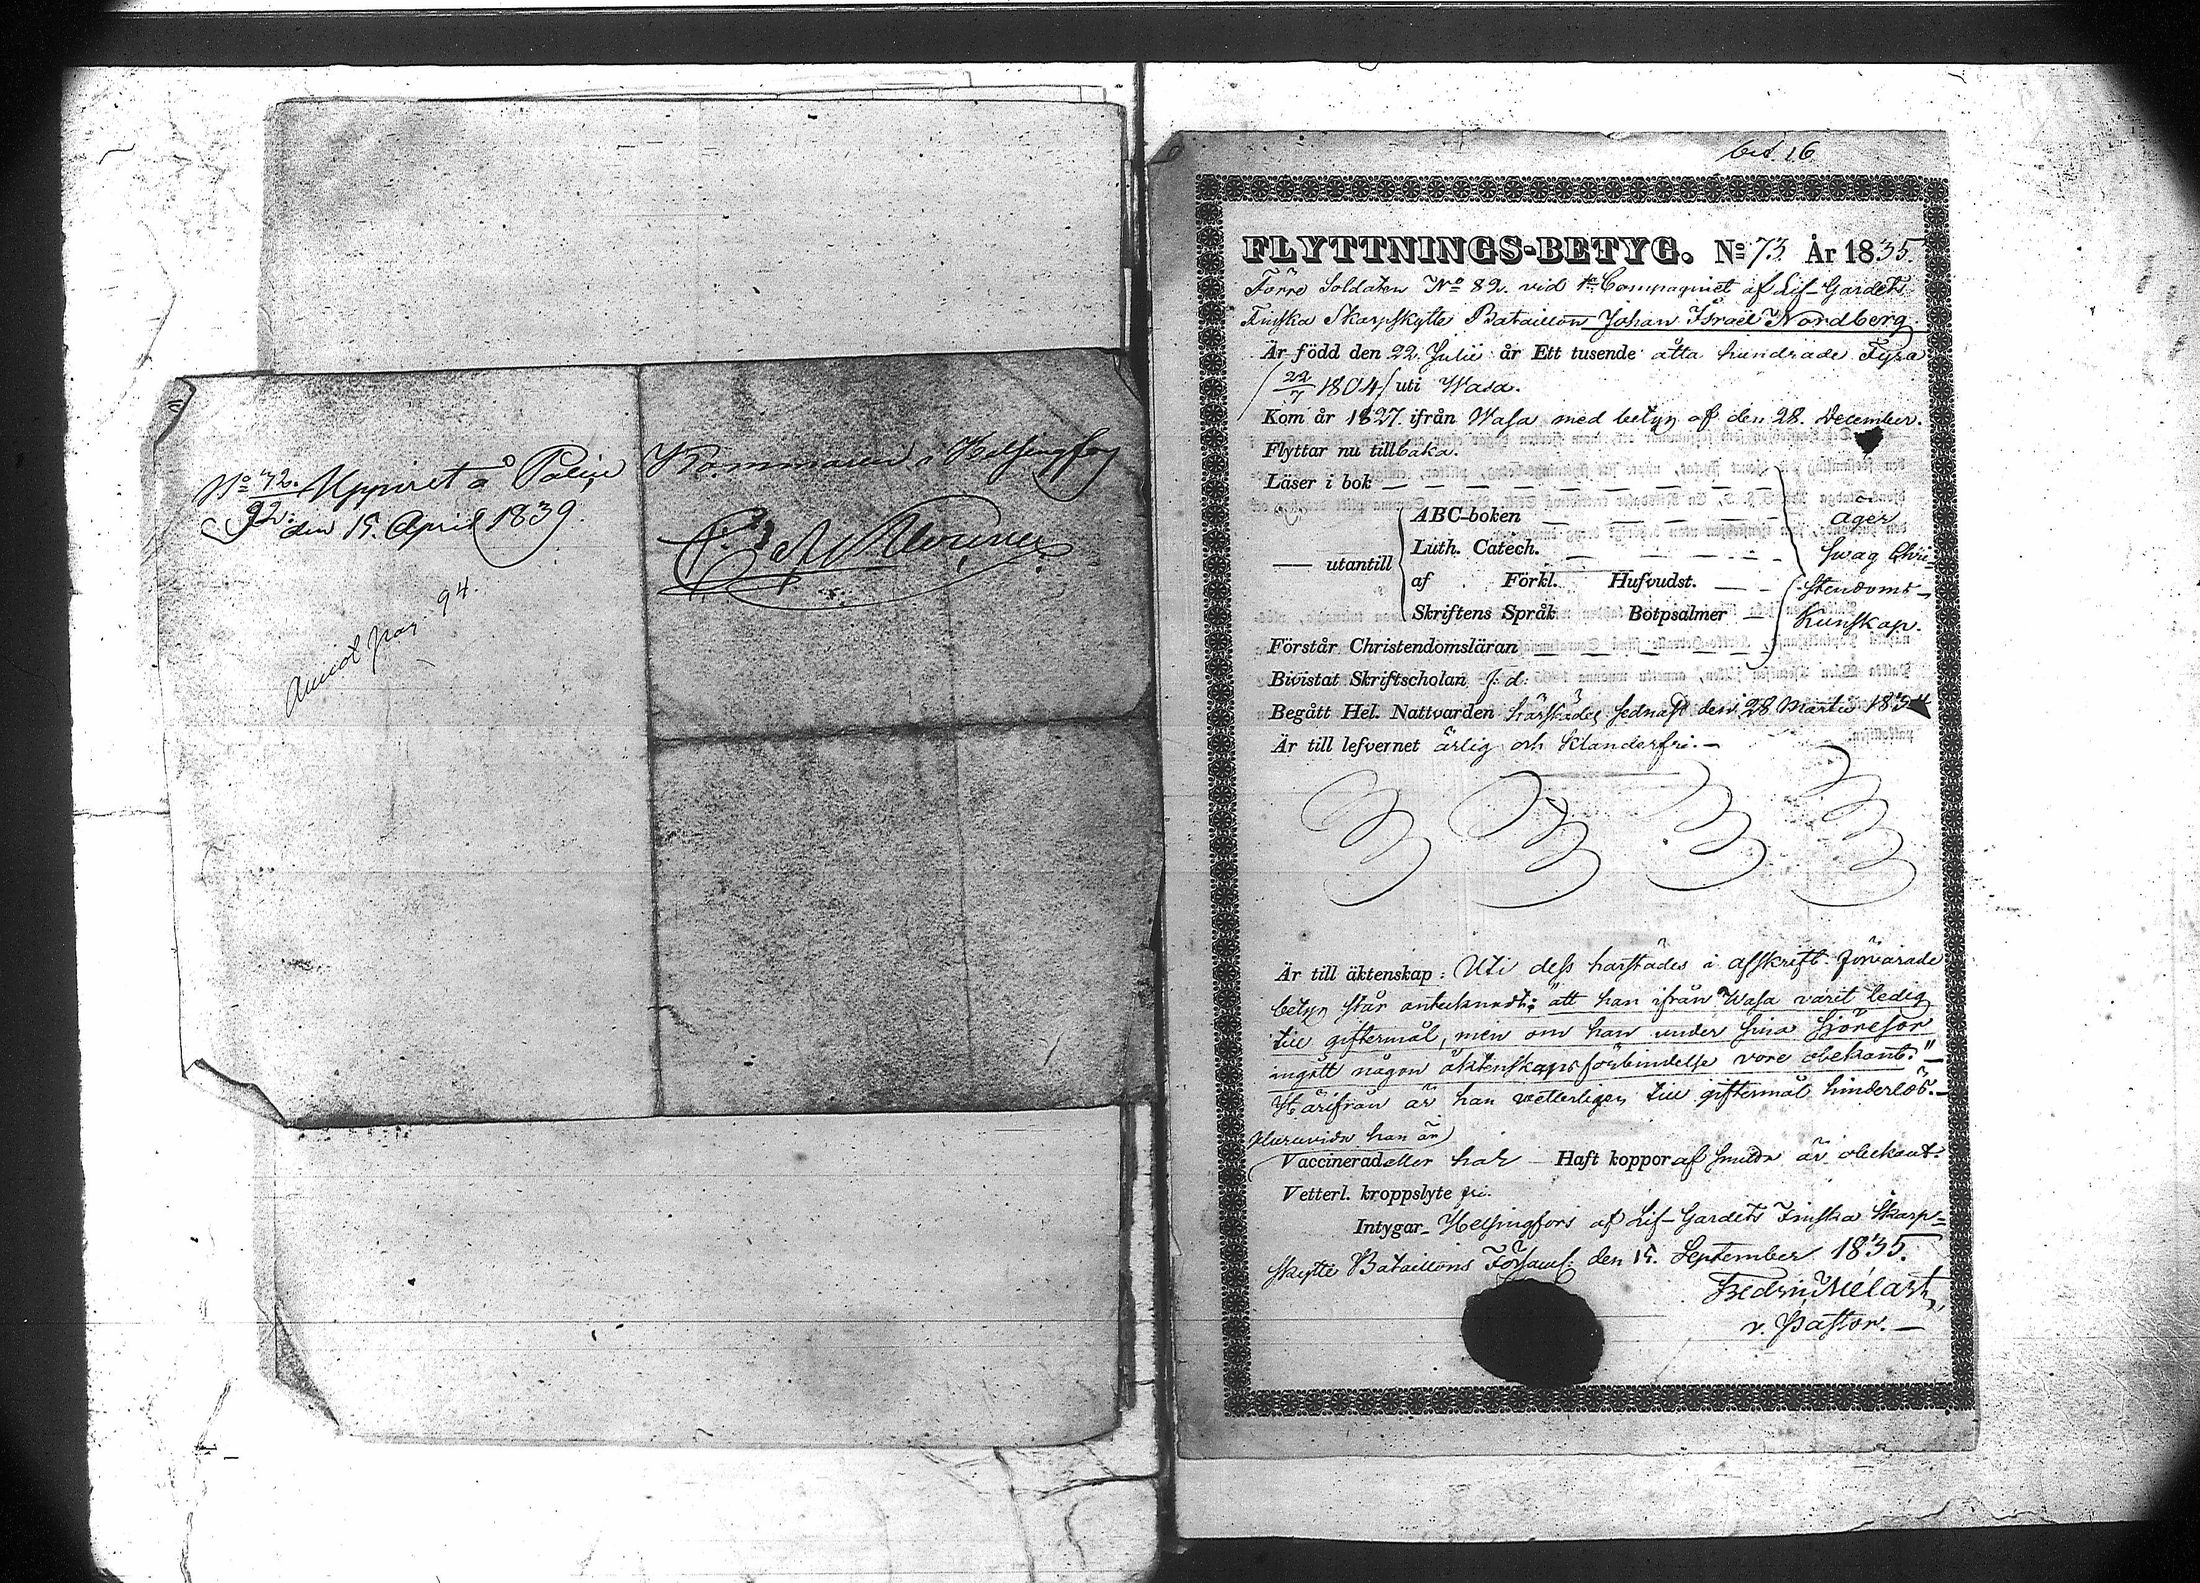 No 72. Uppvist å Police Kammaren i Helsingfors
92. den 15. April 1839.
94.
bet 16
FLYTTNINGS-BETYG. No 73 År 1835
Förre Soldaten No 82. vid 1e Compagniet af Lif-Gardets
Finska Skarpskytte Bataillon Johan Israël Nordberg.
Är född den 22 Julii år Ett tusende åtta hundrade Fyra
/22/7 1804/ uti Wasa.
Kom år 1827. ifrån Wasa med betyg af den 28. December.
Flyttar nu tillbaka.
Läser i bok
— utantill
ABC-boken
Luth. Catech.
af Förkl. Hufvudst.
Skriftens Språk Botpsalmer
Äger
swag Chri-
stendoms-
kunskap.
Förstår Christendomsläran
Bivistat Skriftscholan J. d.
Begått Hel. Nattvarden härstädes sednast den 28 Martii 1834
Är till lefvernet ärlig och klanderfri.—
Är till äktenskap: Uti dess härstädes i afskrift förvarade
betyg står antecknadt: "att han ifrån Wasa varit ledig
till giftermål, men om han under sina sjöresor
ingått någon äktenskapsförbindelse vore obekant."—
Härifrån är han vetterligen till giftermål hinderlös.—
Huruvida han är
Vaccinerad eller har Haft koppor af smitta är obekant.
Vetterl. kroppslyte fri.
Intygar Helsingfors af Lif-Gardets Finska Skarp-
skytte Bataillons Församl. den 15. September 1835.
Fredric Mélart,
v. Pastor.—